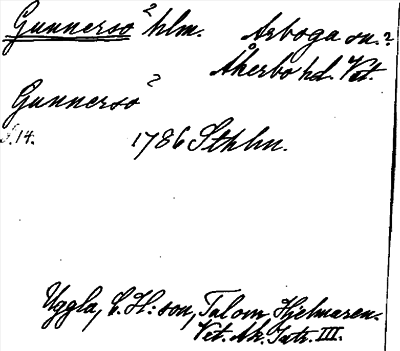 Gunnersö ? hlm. Arboga sn. ?
Åkerbo hd. Vst.
Gunnerso ?
S. 14. 1786 Sthlm.
Uggla, C. H:son, Tal om Hjelmaren.
Vet. Ak. Intr. III.